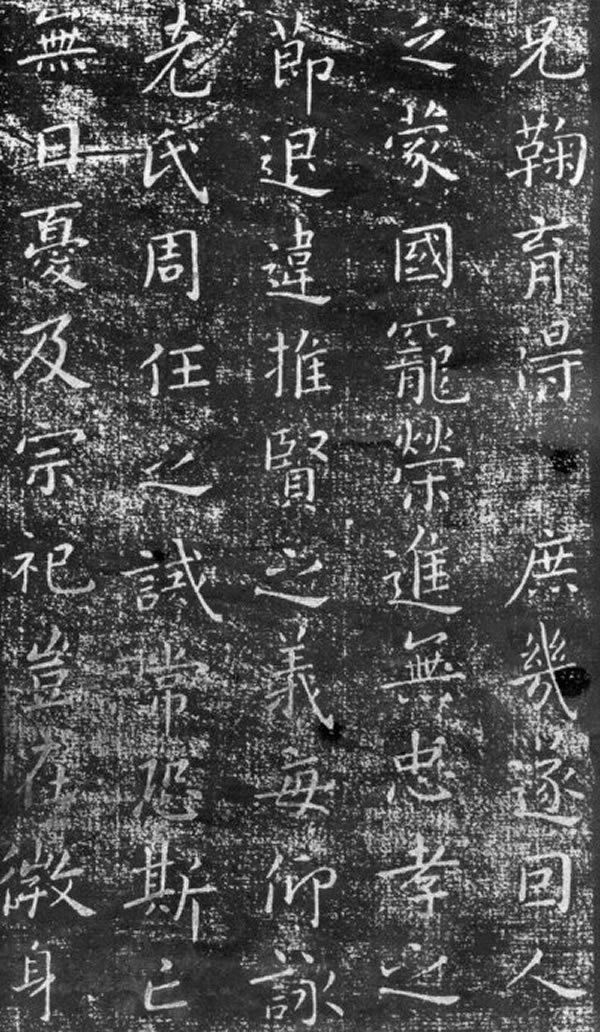 兄鞠育得庶幾遂因人
乏蒙國寵榮進無忠孝之
節退違推賢之義每仰詠
老氏周任之誡常恐斯亡
無日憂及宗祀豈在微身